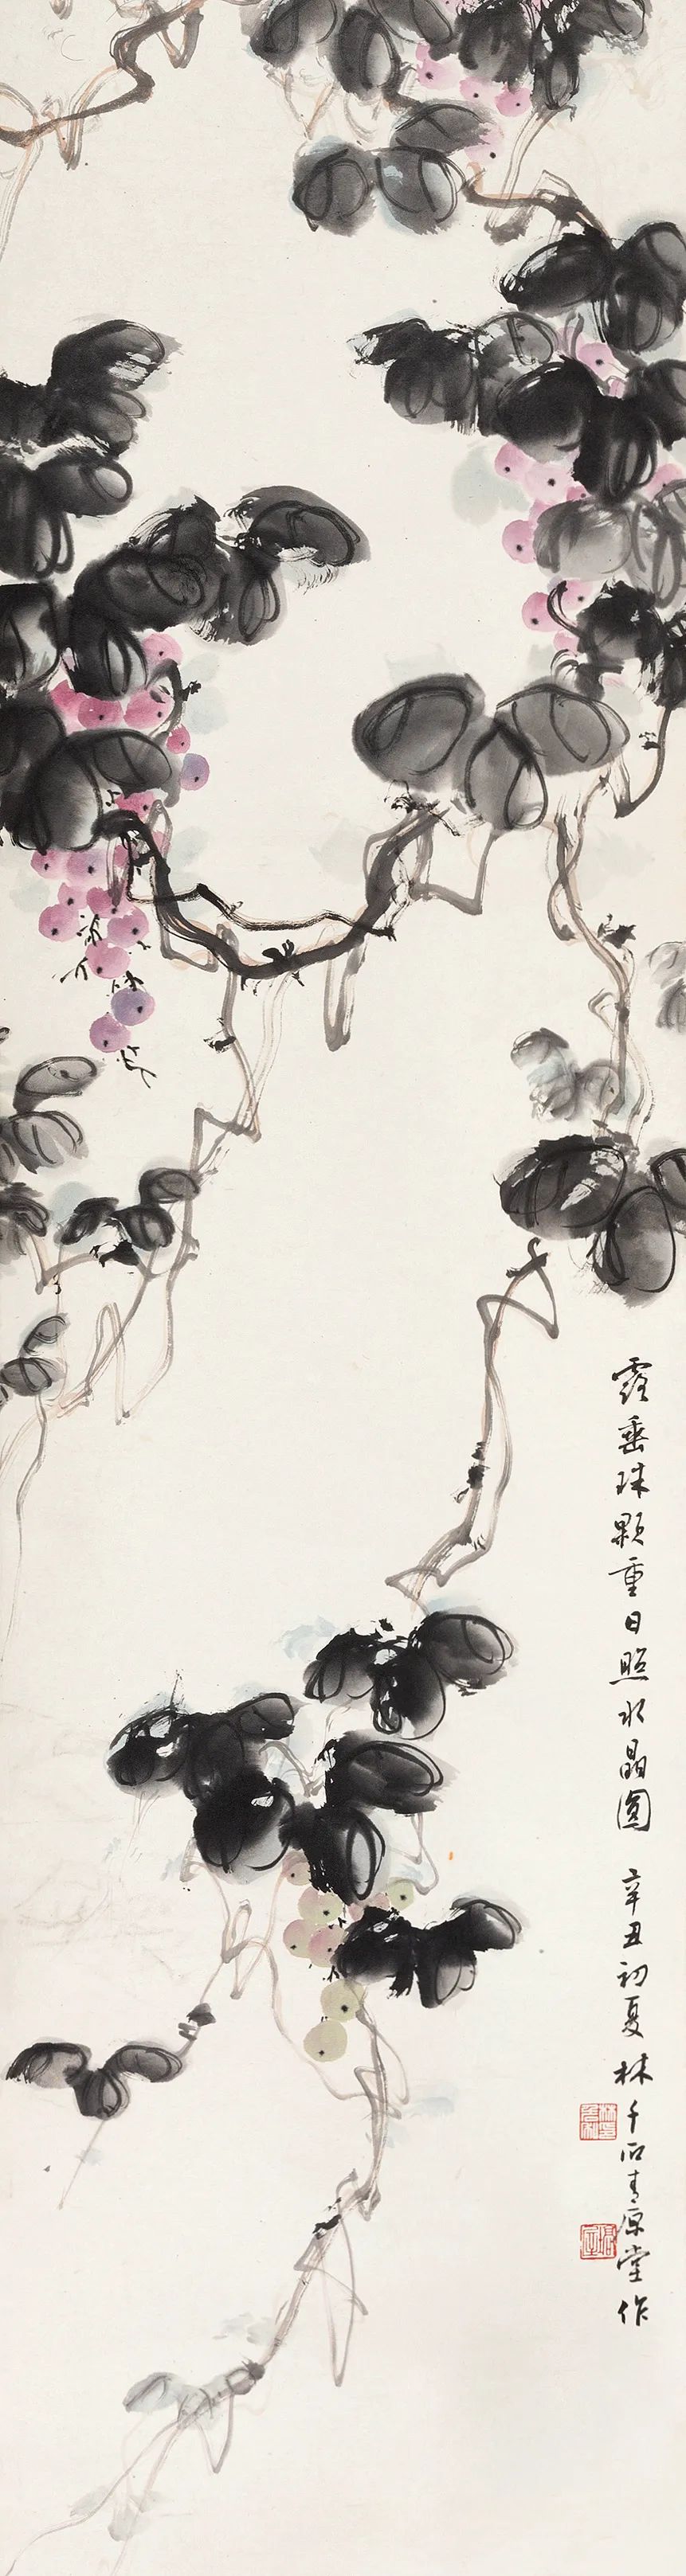 露垂珠顆重日照水晶圓 辛丑初夏 林千石青原堂作